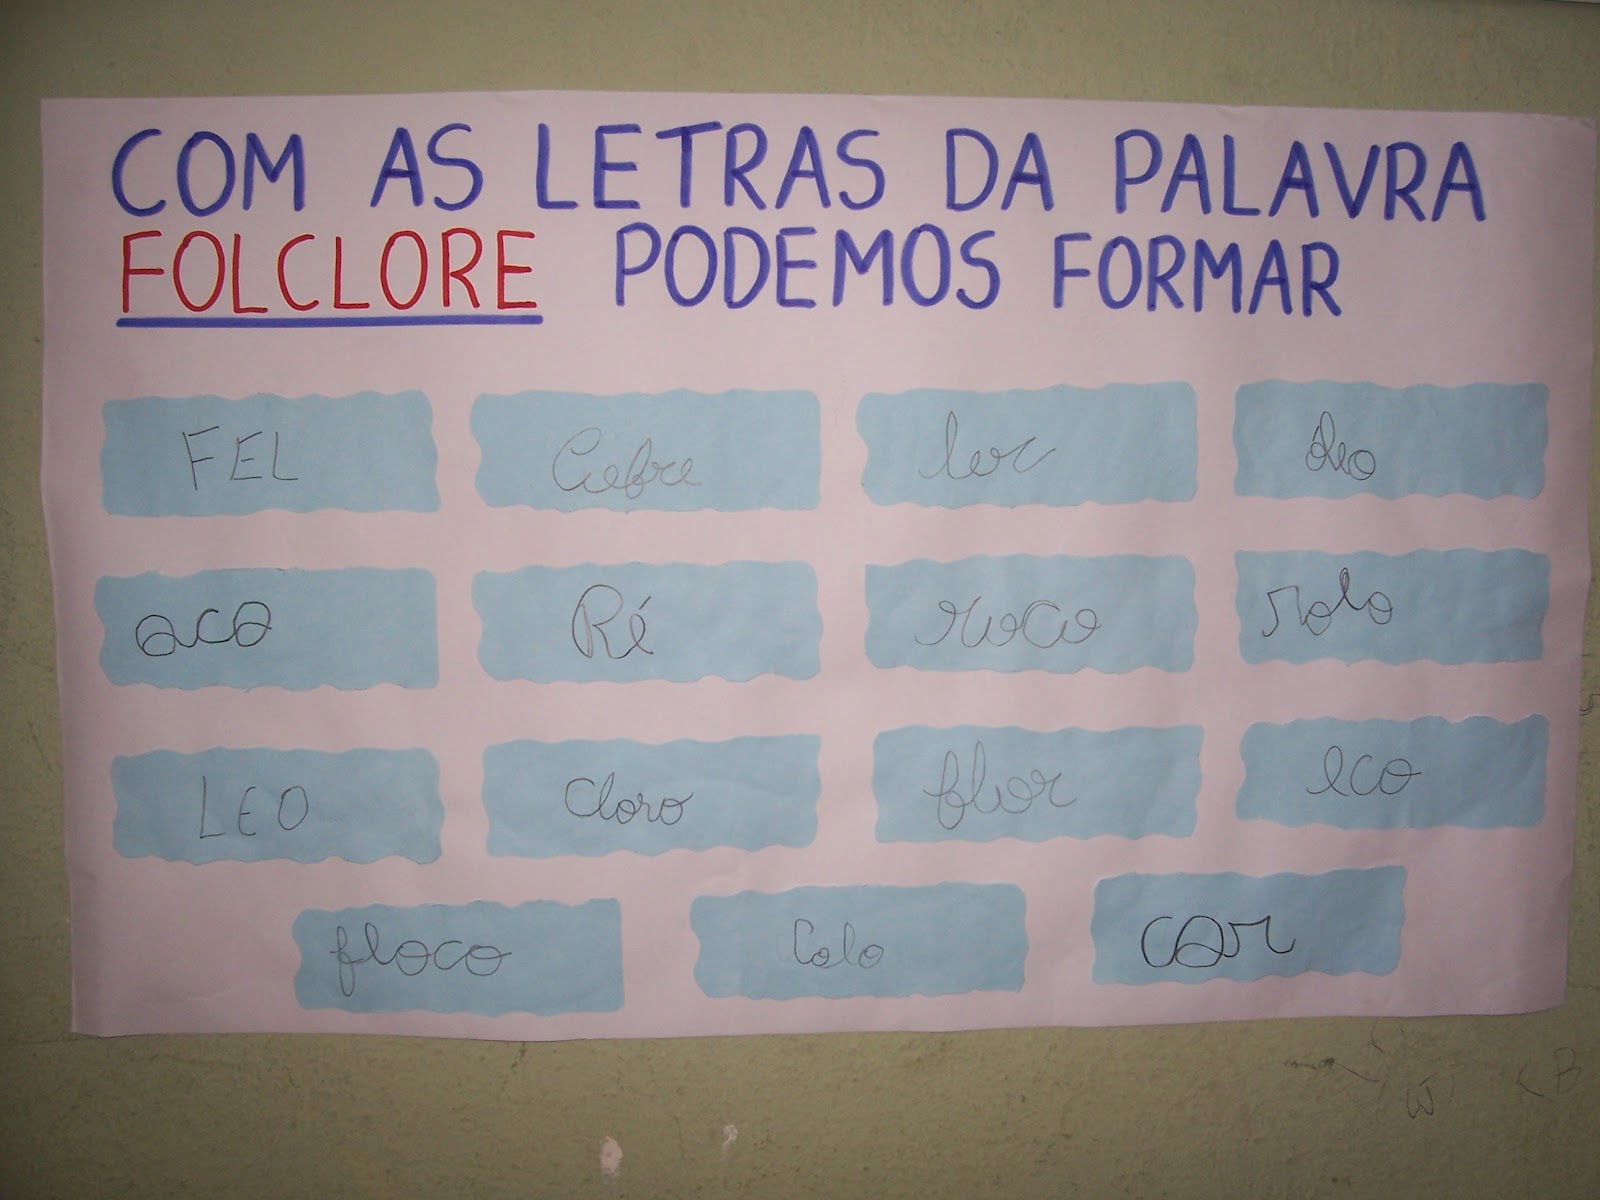 COM AS LETRAS DA PALAVRA
FOLCLORE PODEMOS FORMAR
FEL Cofre ler
oco Ré roco rolo
LEO Cloro flor eco
floco Colo cor